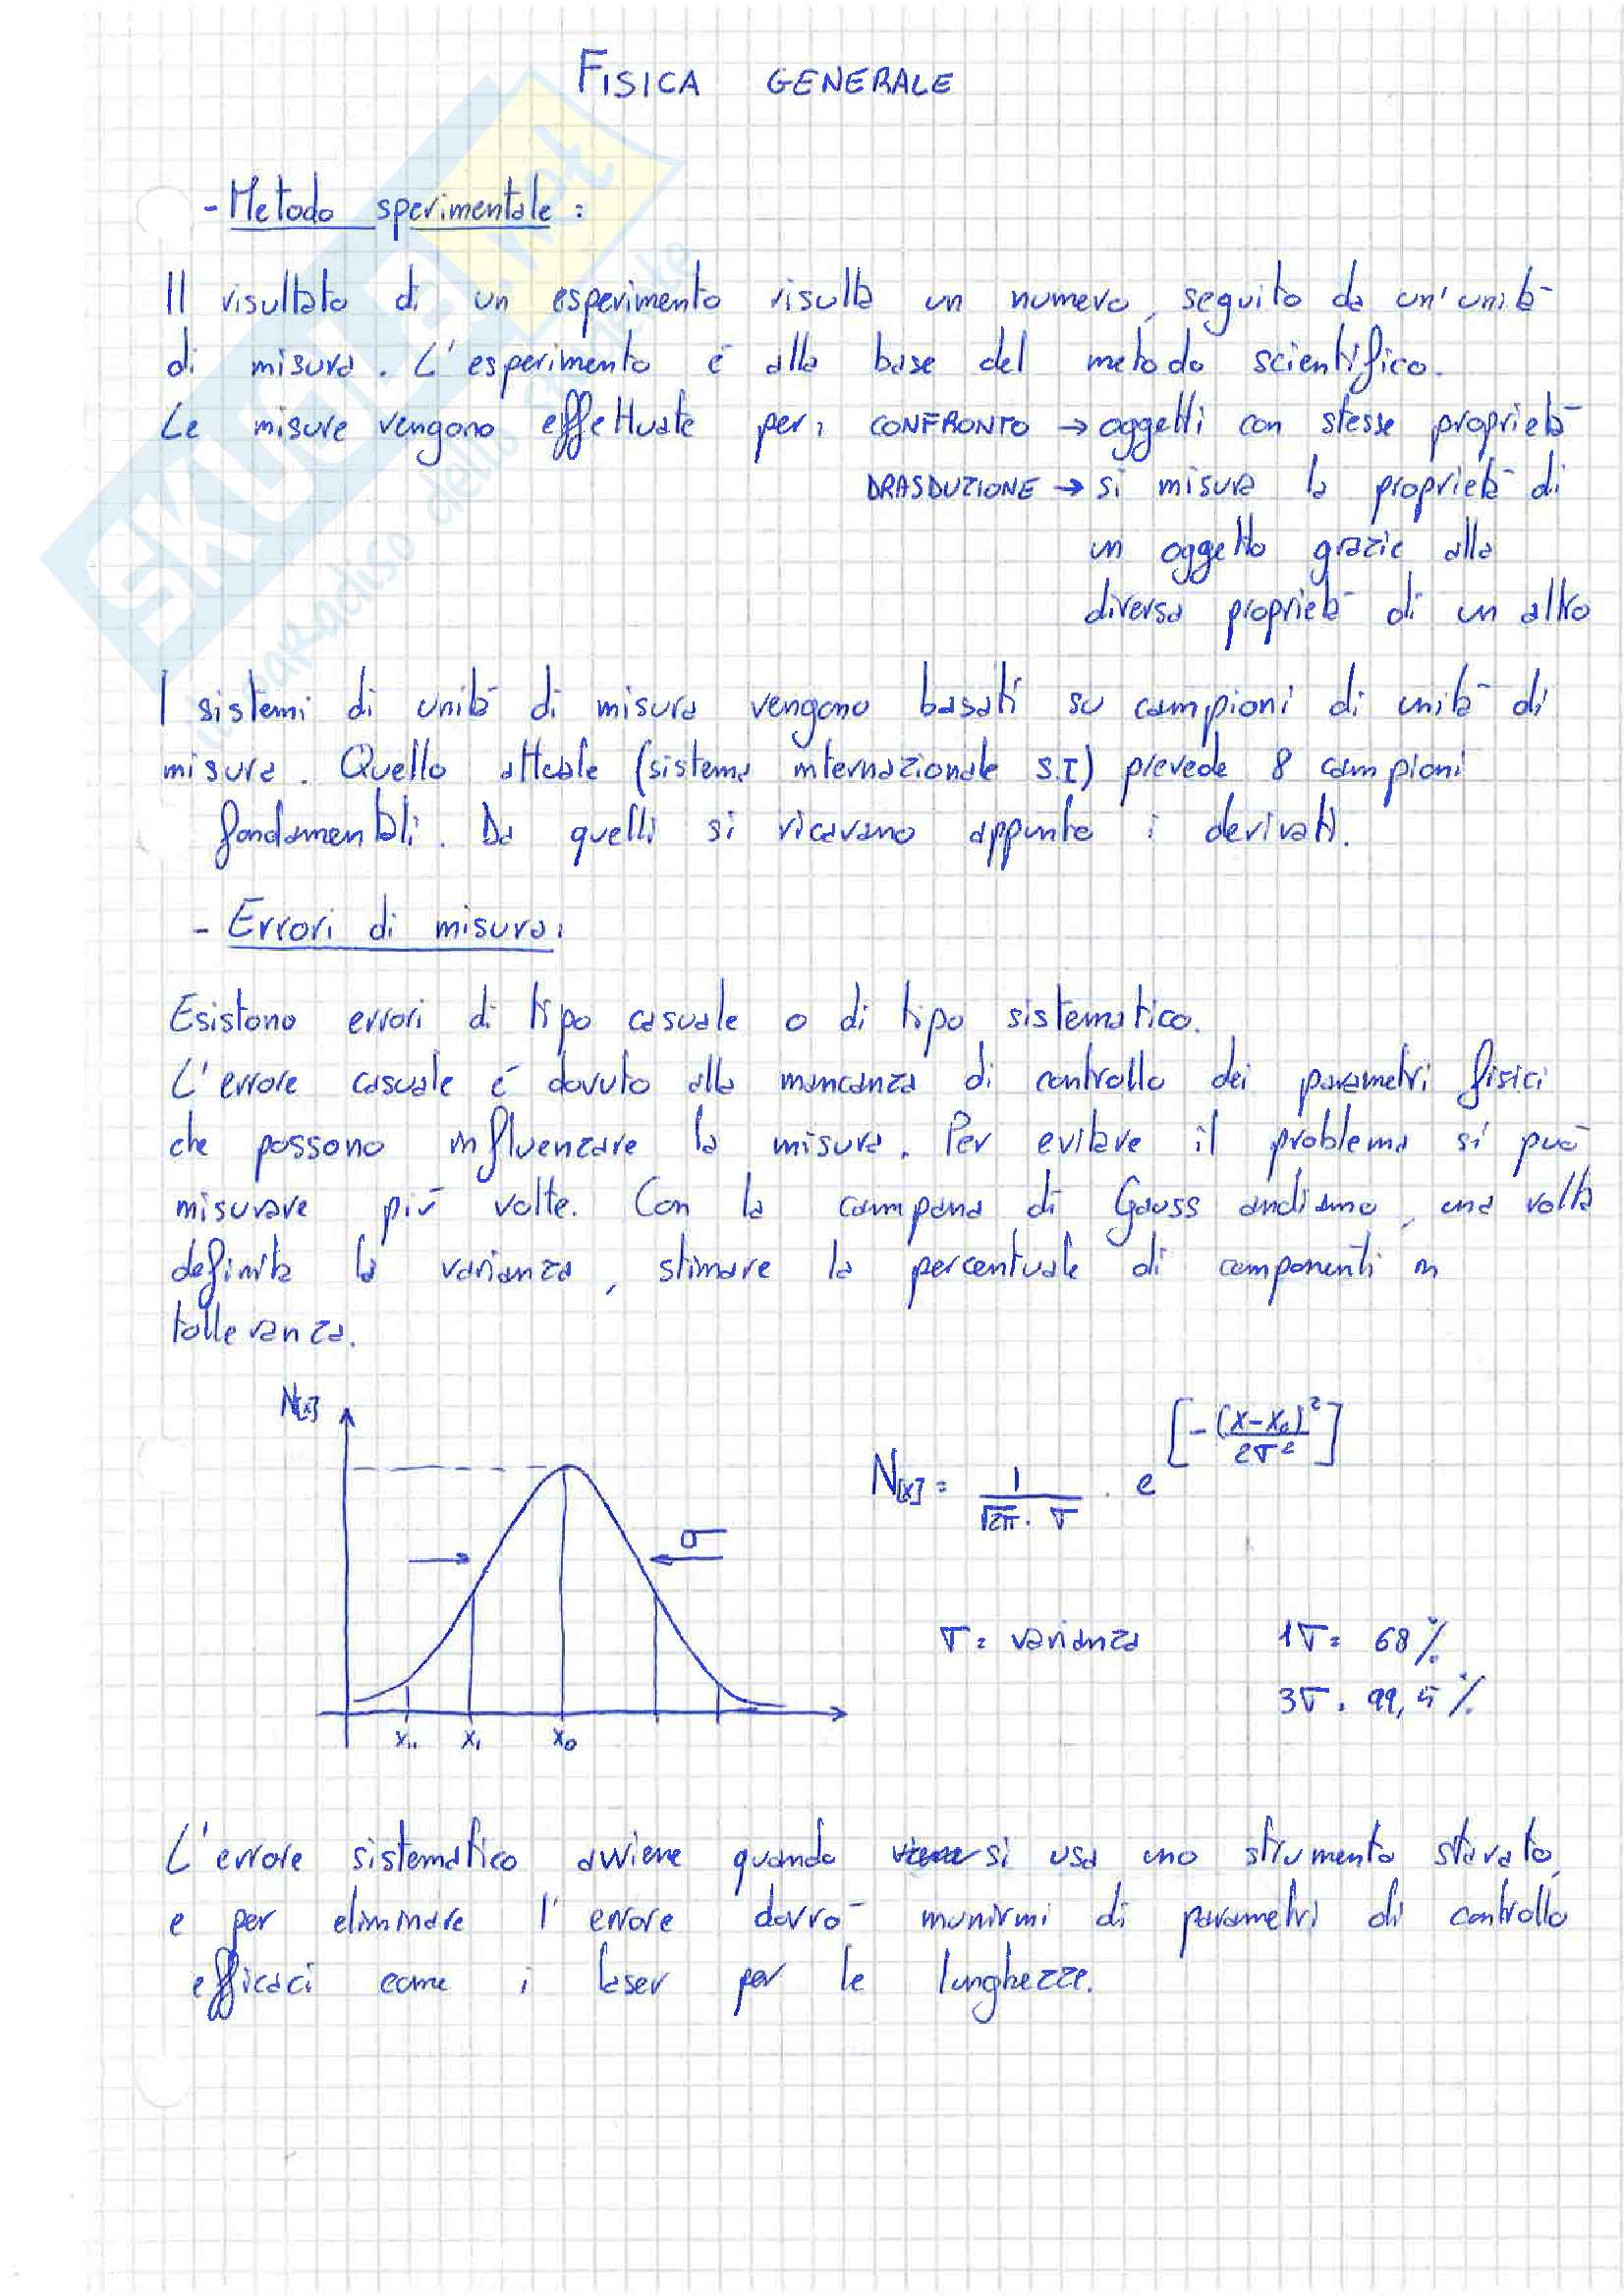 FISICA GENERALE
- Metodo sperimentale :
Il risultato di un esperimento risulta un numero, seguito da un'unità
di misura. L'esperimento è alla base del metodo scientifico.
Le misure vengono effettuate per: CONFRONTO → oggetti con stesse proprietà
DRASDUZIONE → si misura la proprietà di
un oggetto grazie alla
diversa proprietà di un altro
I sistemi di unità di misura vengono basati su campioni di unità di
misura. Quello attuale (sistema internazionale S.I) prevede 8 campioni
fondamentali. Da quelli si ricavano appunto i derivati.
- Errori di misura:
Esistono errori di tipo casuale o di tipo sistematico.
L'errore casuale è dovuto alla mancanza di controllo dei parametri fisici
che possono influenzare la misura. Per evitare il problema si può
misurare più volte. Con la campana di Gauss andiamo, una volta
definita la varianza, stimare la percentuale di componenti in
tolleranza.
N[x]
N[x] = 1/(√2π · σ) · e^[-(x-x₀)²/2σ²]
σ
σ = varianza 1σ = 68%
3σ = 99,5%
x₁₁ x₁ x₀
L'errore sistematico avviene quando si usa uno strumento starato,
e per eliminare l'errore dovrò munirmi di parametri di controllo
efficaci come i laser per le lunghezze.
SKUOLA.net
il paradiso dello studente